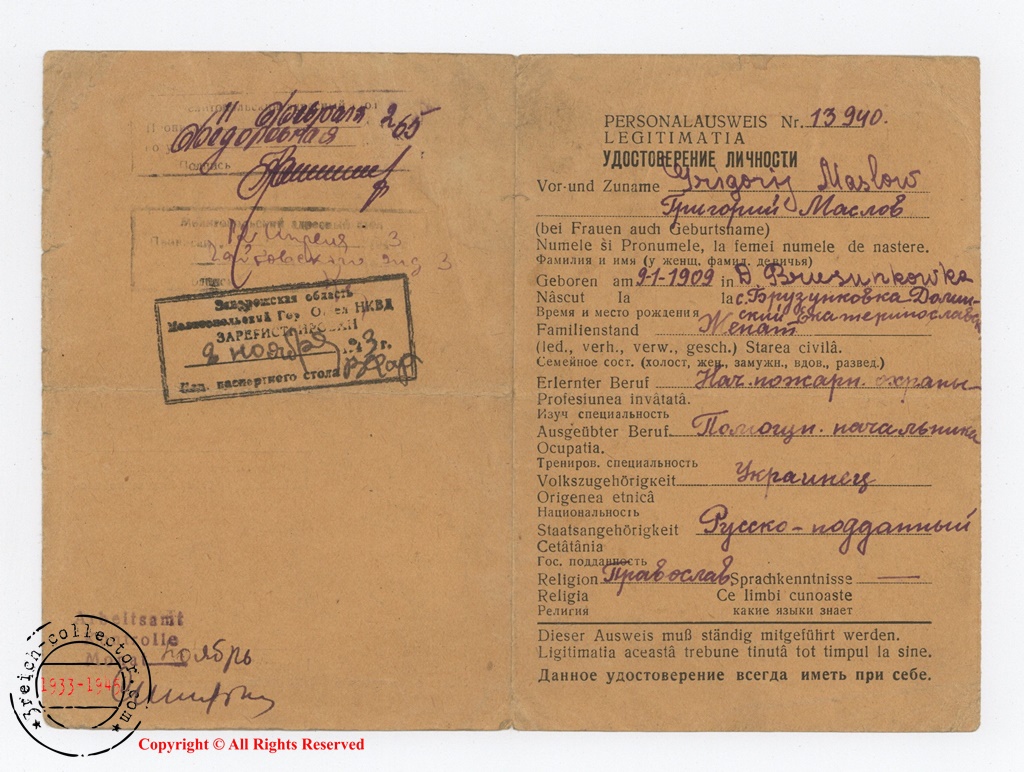 11 Февраля
Федоровская 265
Подпись
Мелитопольский адресный стол
12 Апреля 3
Запорожская область
Мелитопольский Гор. Отдел НКВД
ЗАРЕГИСТРИРОВАН
2 ноября 1943 г.
Нач. паспортного стола
Arbeitsamt
Kontrolle
Monat ноябрь
3reich-collector.com
1933-1945
Copyright © All Rights Reserved
PERSONALAUSWEIS Nr. 13940.
LEGITIMATIA
УДОСТОВЕРЕНИЕ ЛИЧНОСТИ
Vor-und Zuname Grigorij Maslow
Григорий Маслов
(bei Frauen auch Geburtsname)
Numele si Pronumele, la femei numele de nastere.
Фамилия и имя (у женщ. фамил. девичья)
Geboren am 9-1-1909 in D. Brusunkowka
Născut la la с. Брузунковка Долин-
Время и место рождения ский Екатеринославск
Familienstand
(led., verh., verw., gesch.) Starea civilâ.
Семейное сост. (холост, жен., замужн., вдов., развед.)
Erlernter Beruf Нач. пожарн. охраны
Profesiunea învâtatâ.
Изуч специальность
Ausgeübter Beruf Помощн. начальника
Ocupatia.
Трениров. специальность
Volkszugehörigkeit Украинец
Origenea etnicâ
Национальность
Staatsangehörigkeit Русско-подданный
Cetâtânia
Гос. подданность
Religion Православ Sprachkenntnisse —
Religia Ce limbi cunoaste
Религия какие языки знает
Dieser Ausweis muß ständig mitgeführt werden.
Ligitimatia aceastâ trebune tinutâ tot timpul la sine.
Данное удостоверение всегда иметь при себе.